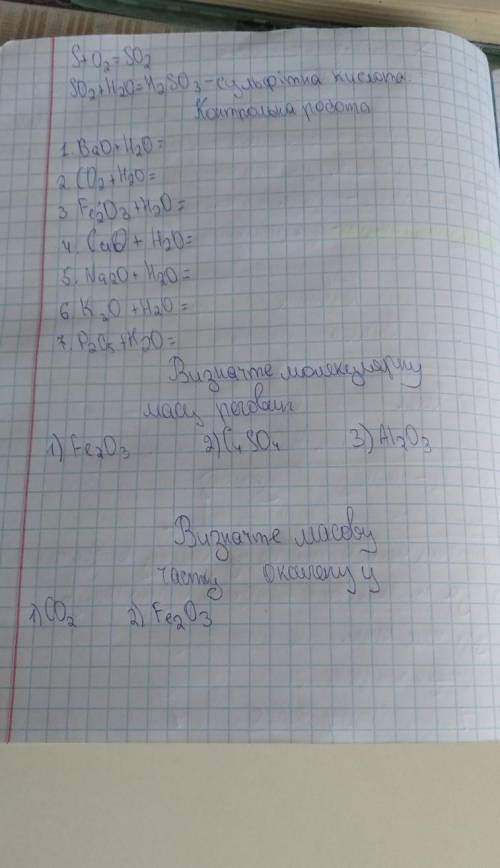 S+O₂=SO₂
SO₂+H₂O=H₂SO₃-сульфітна кислота.
Контрольна робота
1. BaO+H₂O=
2. CO₂+H₂O=
3. Fe₂O₃+H₂O=
4. CuO+H₂O=
5. Na₂O+H₂O=
6. K₂O+H₂O=
7. P₂O₅+K₂O=
Визначте молекулярну
масу речовин
1) Fe₂O₃ 2) SO₄ 3) Al₂O₃
Визначте масову
частку оксигену у
1) CO₂ 2) Fe₂O₃